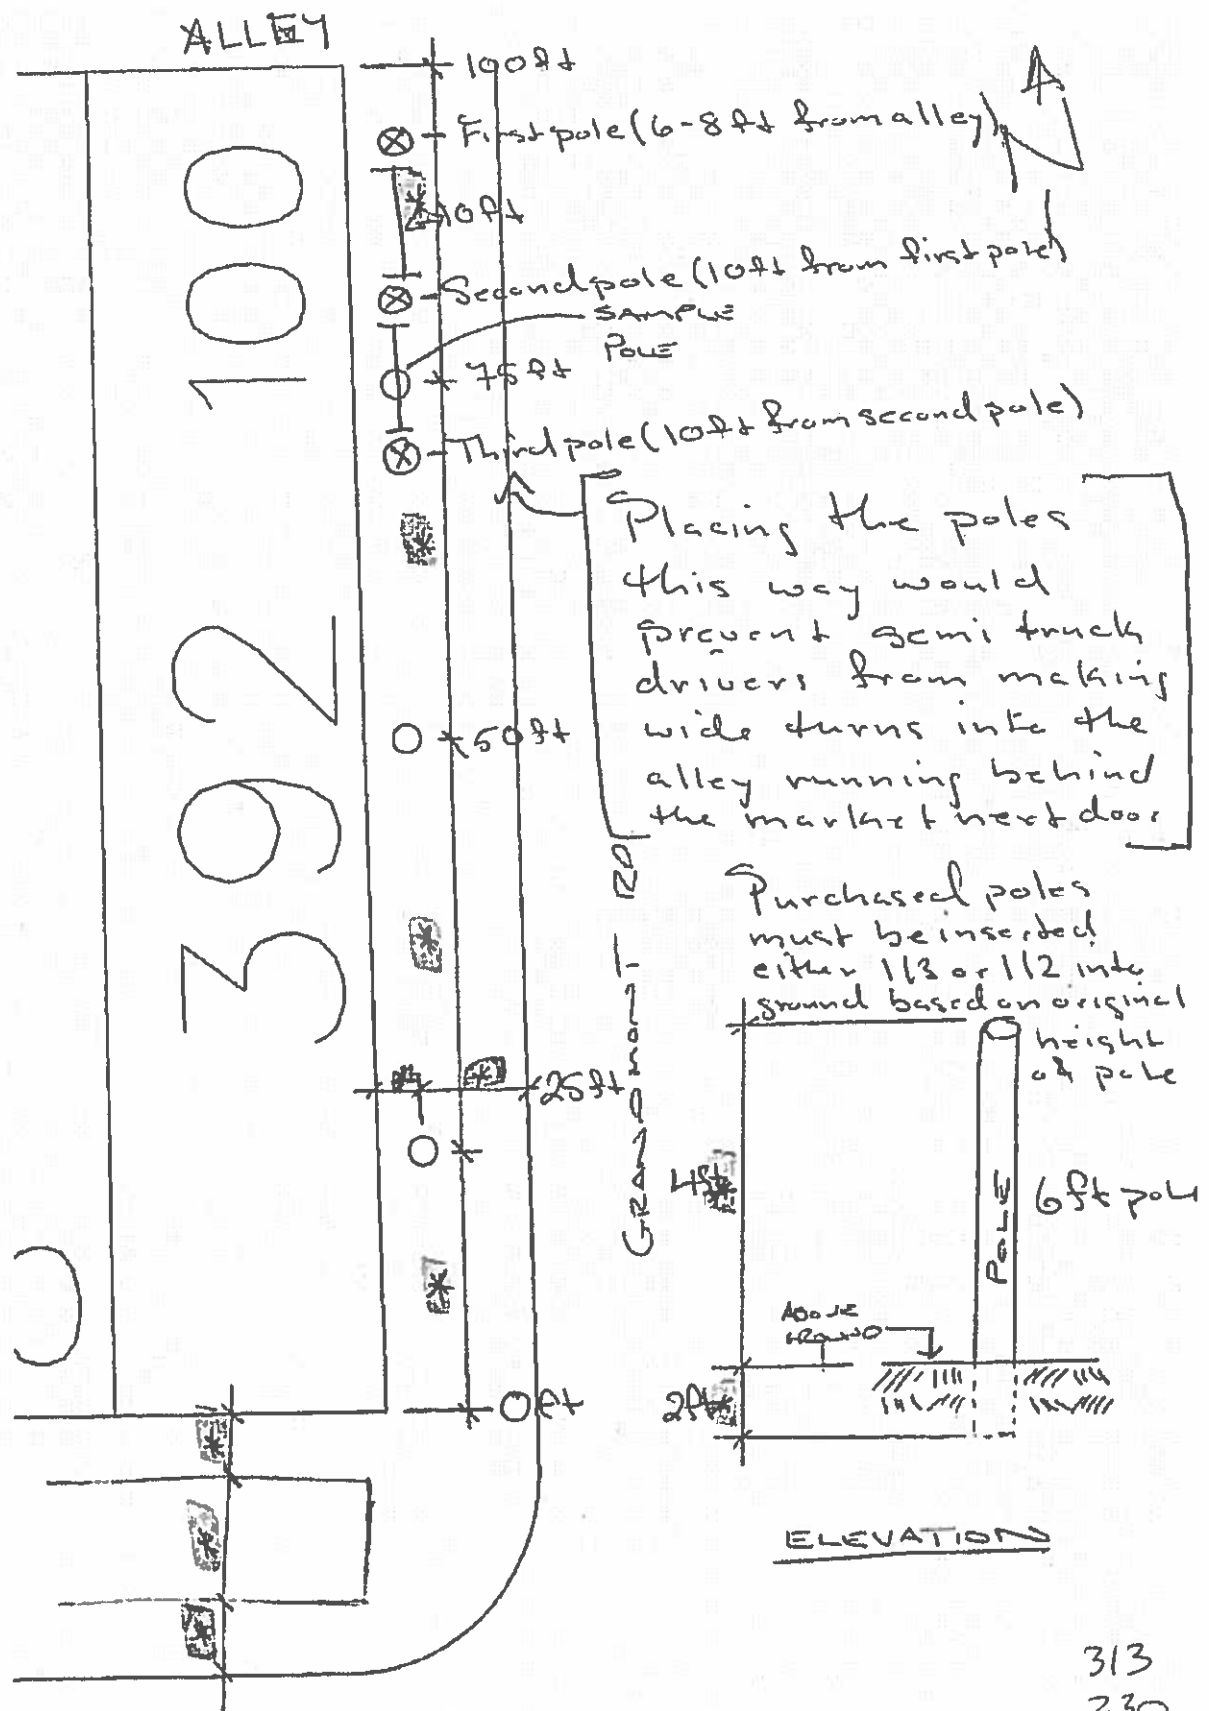 ALLEY
100ft
First pole (6-8ft from alley)
10ft
Second pole (10ft from first pole)
SAMPLE
POLE
75ft
Third pole (10ft from second pole)
100
392
Placing the poles
this way would
prevent semi truck
drivers from making
wide turns into the
alley running behind
the market next door.
50ft
Purchased poles
must be inserted
either 1/3 or 1/2 into
ground based on original
height
of pole
25ft
GRANDMONT RD
4ft
POLE
6ft pole
ABOVE
GROUND
0ft
2ft
ELEVATION
313
230